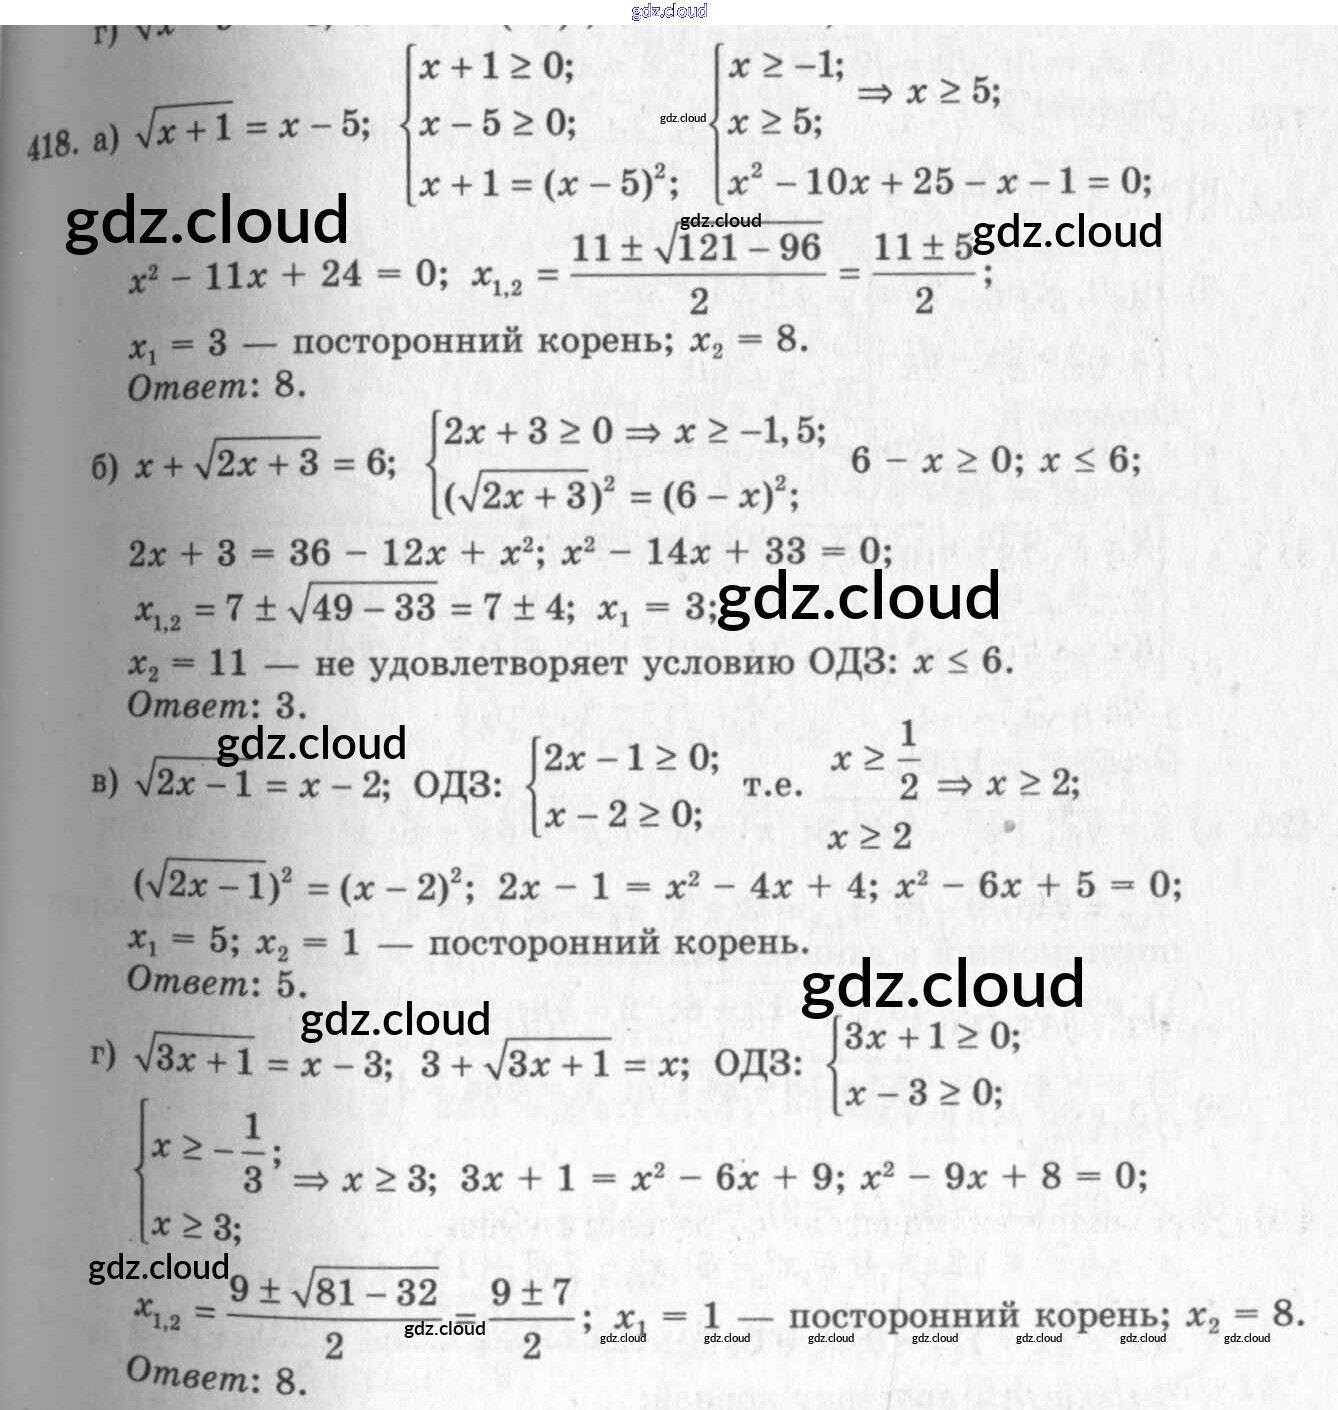 gdz.cloud
418. а) √(x + 1) = x − 5; { x + 1 ≥ 0; x − 5 ≥ 0; x + 1 = (x − 5)²; gdz.cloud { x ≥ −1; x ≥ 5; x² − 10x + 25 − x − 1 = 0; ⇒ x ≥ 5;
gdz.cloud gdz.cloud gdz.cloud
x² − 11x + 24 = 0; x₁,₂ = (11 ± √(121 − 96))/2 = (11 ± 5)/2;
x₁ = 3 — посторонний корень; x₂ = 8.
Ответ: 8.
б) x + √(2x + 3) = 6; { 2x + 3 ≥ 0 ⇒ x ≥ −1,5; (√(2x + 3))² = (6 − x)²; 6 − x ≥ 0; x ≤ 6;
2x + 3 = 36 − 12x + x²; x² − 14x + 33 = 0;
x₁,₂ = 7 ± √(49 − 33) = 7 ± 4; x₁ = 3; gdz.cloud
x₂ = 11 — не удовлетворяет условию ОДЗ: x ≤ 6.
Ответ: 3.
gdz.cloud
в) √(2x − 1) = x − 2; ОДЗ: { 2x − 1 ≥ 0; x − 2 ≥ 0; т.е. x ≥ 1/2 x ≥ 2 ⇒ x ≥ 2;
(√(2x − 1))² = (x − 2)²; 2x − 1 = x² − 4x + 4; x² − 6x + 5 = 0;
x₁ = 5; x₂ = 1 — посторонний корень.
Ответ: 5.
gdz.cloud gdz.cloud
г) √(3x + 1) = x − 3; 3 + √(3x + 1) = x; ОДЗ: { 3x + 1 ≥ 0; x − 3 ≥ 0;
{ x ≥ −1/3; x ≥ 3; ⇒ x ≥ 3; 3x + 1 = x² − 6x + 9; x² − 9x + 8 = 0;
gdz.cloud
x₁,₂ = (9 ± √(81 − 32))/2 = (9 ± 7)/2; x₁ = 1 — посторонний корень; x₂ = 8.
gdz.cloud gdz.cloud gdz.cloud gdz.cloud gdz.cloud gdz.cloud gdz.cloud gdz.cloud
Ответ: 8.